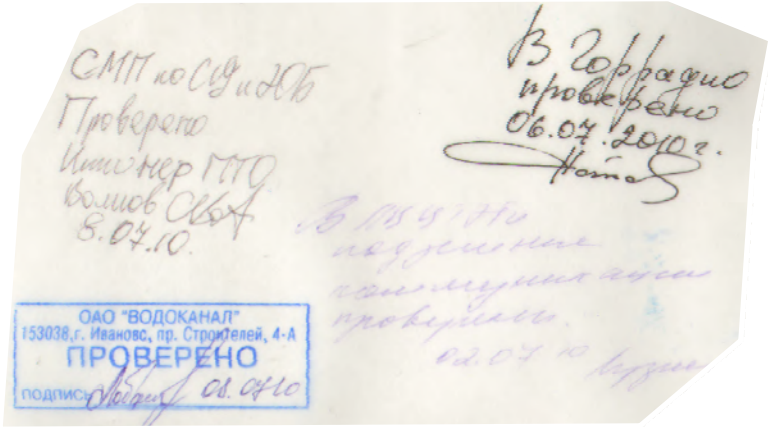 СМП по СЦ и ЭОБ
Проверено
Инженер ПТО
8.07.10.
В Горрадио
проверено
06.07.2010г.
В
подземные
коммуникации
проверены.
02.07 10
ОАО "ВОДОКАНАЛ"
153038, г. Иваново, пр. Строителей, 4-А
ПРОВЕРЕНО
ПОДПИСЬ 08.07.10